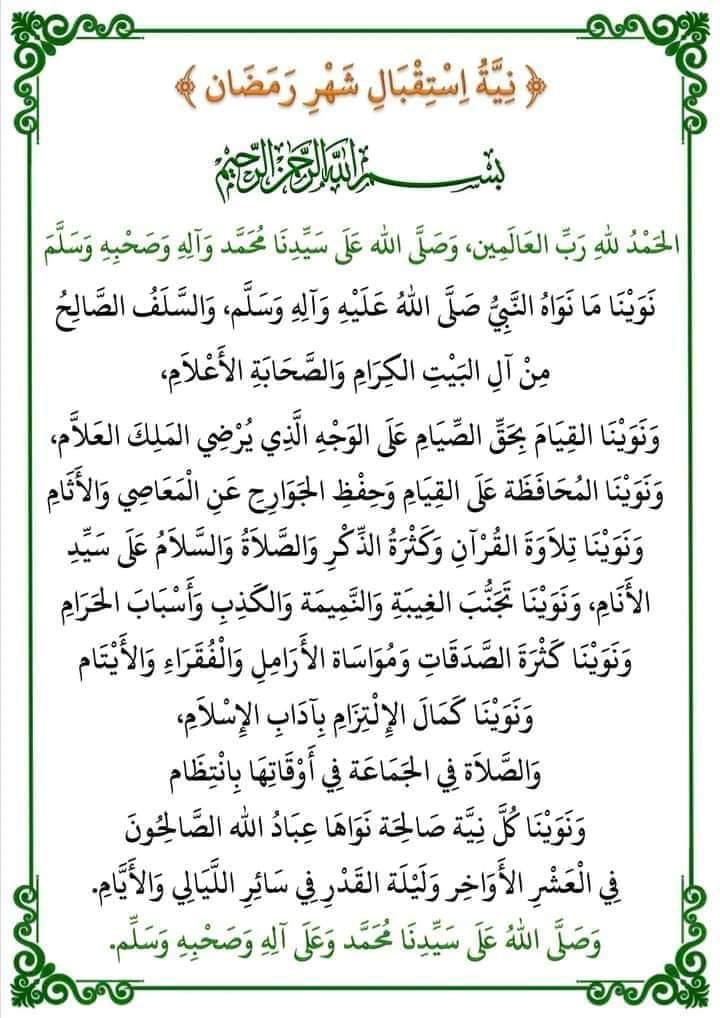 ﴿ نِيَّةُ اِسْتِقْبَالِ شَهْرِ رَمَضَان ﴾
بسم الله الرحمن الرحيم
الحَمْدُ للهِ رَبِّ العَالَمِين، وَصَلَّى الله عَلَى سَيِّدِنَا مُحَمَّد وَآلِهِ وَصَحْبِهِ وَسَلَّمَ
نَوَيْنَا مَا نَوَاهُ النَّبِيُّ صَلَّى اللهُ عَلَيْهِ وَآلِهِ وَسَلَّم، وَالسَّلَفُ الصَّالِحُ
مِنْ آلِ البَيْتِ الكِرَامِ وَالصَّحَابَةِ الأَعْلَامِ،
وَنَوَيْنَا القِيَامَ بِحَقِّ الصِّيَامِ عَلَى الوَجْهِ الَّذِي يُرْضِي المَلِكَ العَلاَّم،
وَنَوَيْنَا المُحَافَظَة عَلَى القِيَامِ وَحِفْظِ الجَوَارِحِ عَنِ الْمَعَاصِي وَالأَثَامِ
وَنَوَيْنَا تِلَاوَةَ القُرْآنِ وَكَثْرَةُ الذِّكْرِ وَالصَّلَاةُ وَالسَّلَامُ عَلَى سَيِّدِ
الأَنَامِ، وَنَوَيْنَا تَجَنُّبَ الغِيبَةِ وَالنَّمِيمَة وَالكَذِبِ وَأَسْبَابَ الحَرَامِ
وَنَوَيْنَا كَثْرَةَ الصَّدَقَاتِ وَمُوَاسَاة الأَرَامِلِ وَالْفُقَرَاءِ وَالأَيْتَام
وَنَوَيْنَا كَمَالَ الإِلْتِزَامِ بِآدَابِ الإِسْلَامِ،
وَالصَّلَاة فِي الجَمَاعَة فِي أَوْقَاتِهَا بِانْتِظَام
وَنَوَيْنَا كُلَّ نِيَّة صَالِحَة نَوَاهَا عِبَادُ الله الصَّالِحُونَ
فِي الْعَشْرِ الأَوَاخِر وَلَيْلَة القَدْرِ فِي سَائِرِ اللَّيَالِي وَالأَيَّامِ.
وَصَلَّى اللهُ عَلَى سَيِّدِنَا مُحَمَّد وَعَلَى آلِهِ وَصَحْبِهِ وَسَلِّم.